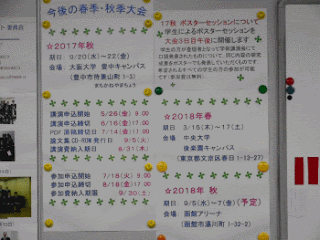 今後の春季・秋季大会
☆2017年 秋
期日 9/20(水)〜22(金)
会場 大阪大学 豊中キャンパス
(豊中市待兼山町 1-3)
まちかねやまちょう
講演申込開始 5/26(金) 9:00
講演申込締切 6/16(金)17:00
PDF 原稿締切 7/18(火)17:00
論文集(CD-ROM)発行日 9/5(火)
講演費納入期日 8/31(木)
参加申込開始 7/18(火) 9:00
参加申込締切 8/18(金)17:00
参加費納入期限 9/20(水)
17秋 ポスターセッションについて
学生によるポスターセッションを
大会3日目午後に開催します
☆2018年 春
期日 3/15(木)〜17(土)
会場 中央大学
後楽園キャンパス
(東京都文京区春日 1-13-27)
☆2018年 秋
期日 9/5(水)〜7(金)(予定)
会場 函館アリーナ
(函館市湯川町 1-32-2)